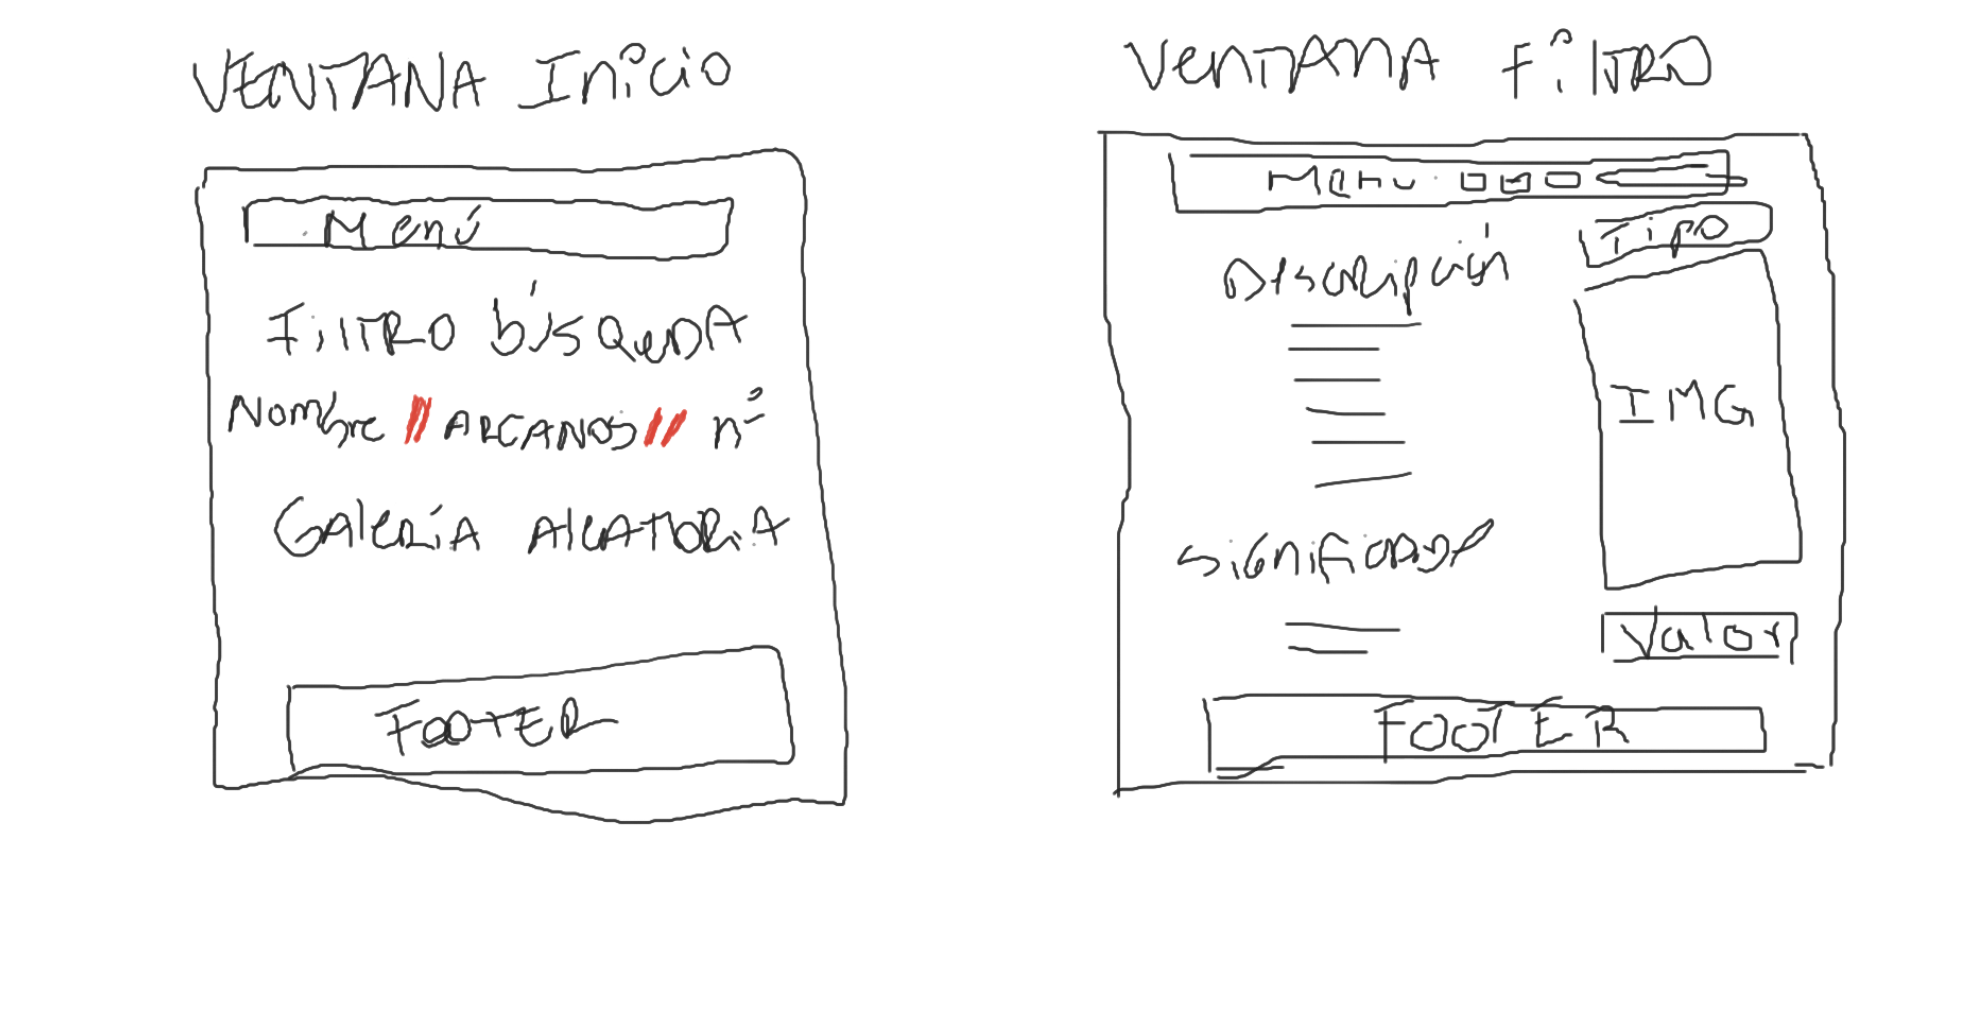 VENTANA Inicio
Menú
FilTRO búsQueDA
Nombre // ARCANOS // nº
GAleRíA AleATORiA
FOOTER
VenTANA FilTRO
Menu
Tipo
Descripción
IMG
SiGnificado
Valor
FOOTER